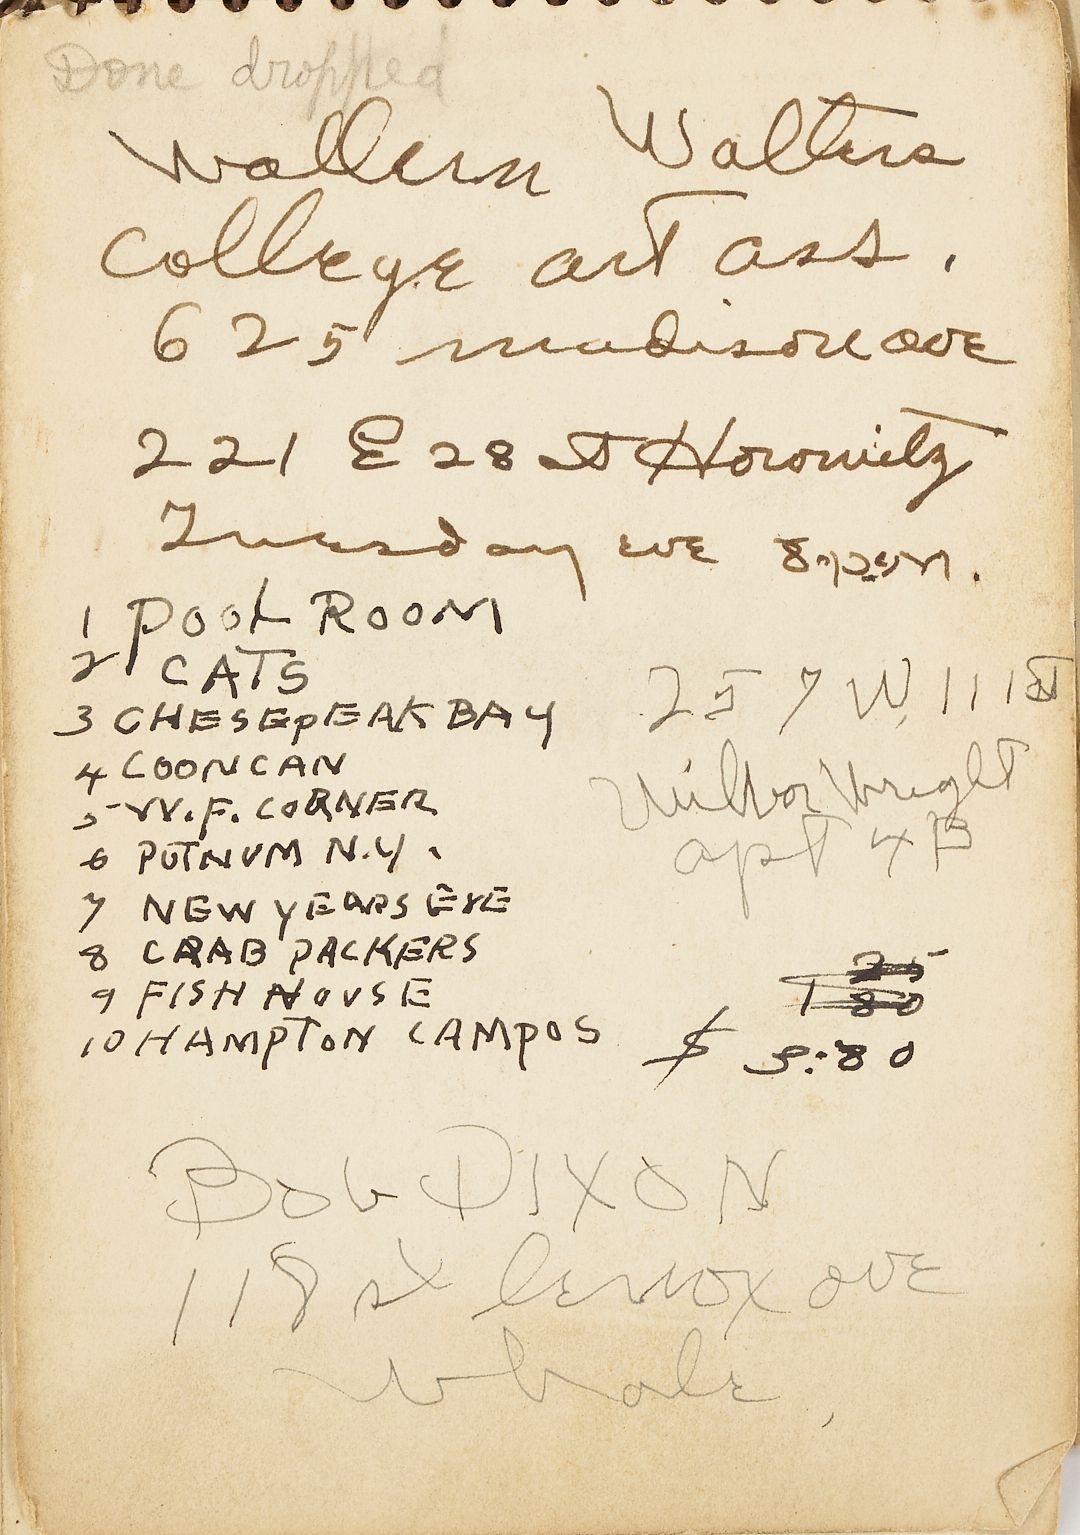 Done dropped
Wallern Walters
College art ass.
625 madison ave
221 E 28 st Horowitz
Tuesday eve 8 p.m.
1 POOL ROOM
2 CATS
3 CHESEPEAK BAY
4 COONCAN
5 W.F. CORNER
6 PUTNUM N.Y.
7 NEW YEARS EVE
8 CRAB PACKERS
9 FISH HOUSE
10 HAMPTON CAMPOS
257 W. 111 ST
Wilbor Wright
apt 4B
25
1 80
$ 3.80
Bob DIXON
118 st lenox ave
Whale,